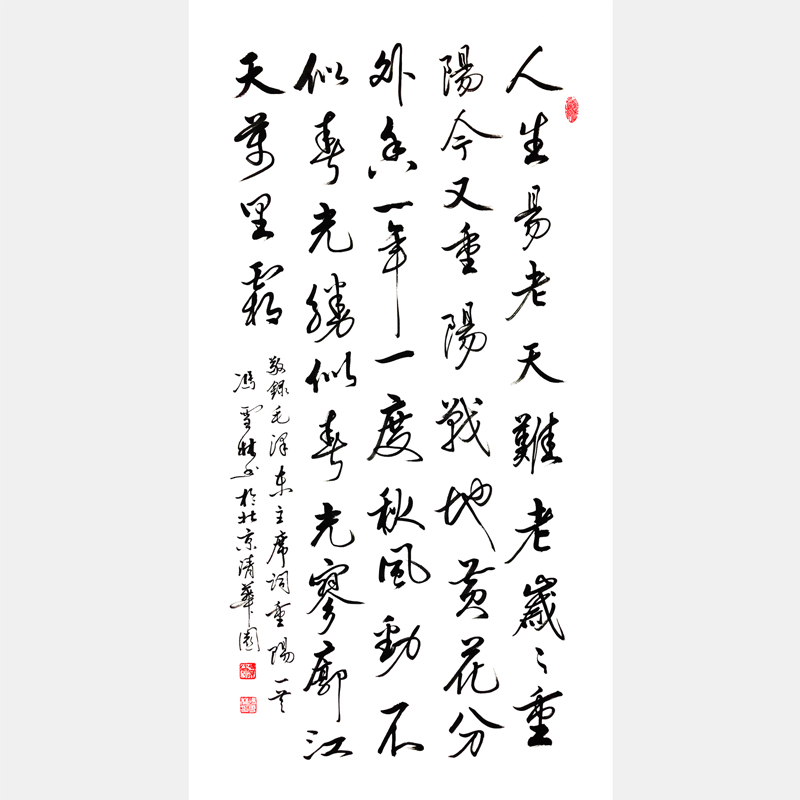 人生易老天難老歲々重
陽今又重陽戰地黄花分
外香一年一度秋風勁不
似春光勝似春光寥廓江
天萬里霜
敬錄毛澤東主席詞重陽一首
馮雪林书於北京清華園